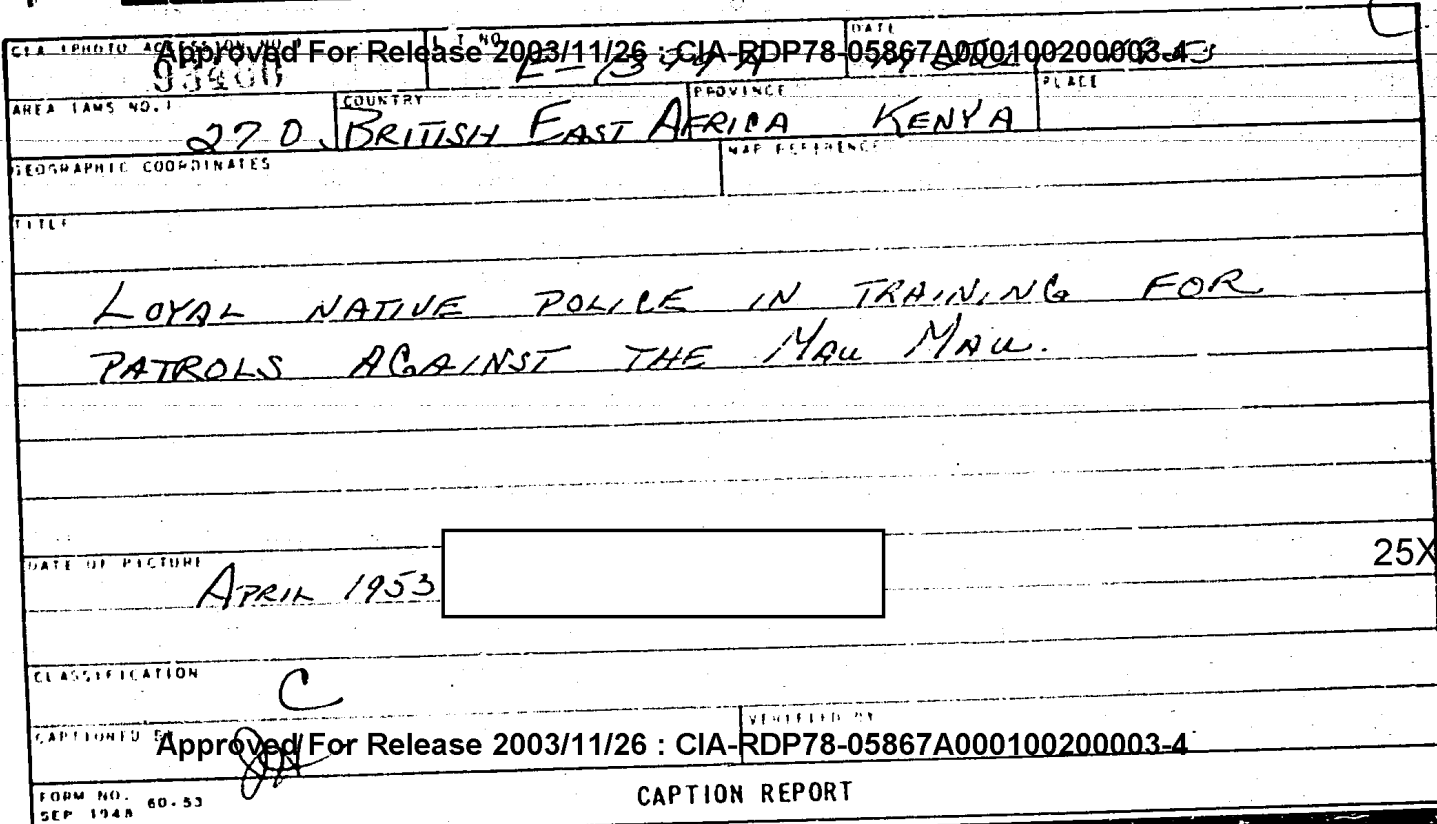 CIA (PHOTO ACCESSION NO.) L T NO. DATE
Approved For Release 2003/11/26 : CIA-RDP78-05867A000100200003-4
AREA (AMS NO.) COUNTRY PROVINCE PLACE
270 BRITISH EAST AFRICA KENYA
GEOGRAPHIC COORDINATES MAP REFERENCE
TITLE
LOYAL NATIVE POLICE IN TRAINING FOR
PATROLS AGAINST THE MAU MAU.
25X
DATE OF PICTURE
APRIL 1953
CLASSIFICATION
C
CAPTIONED BY VERIFIED BY
Approved For Release 2003/11/26 : CIA-RDP78-05867A000100200003-4
FORM NO. 60-53 CAPTION REPORT
SEP 1948